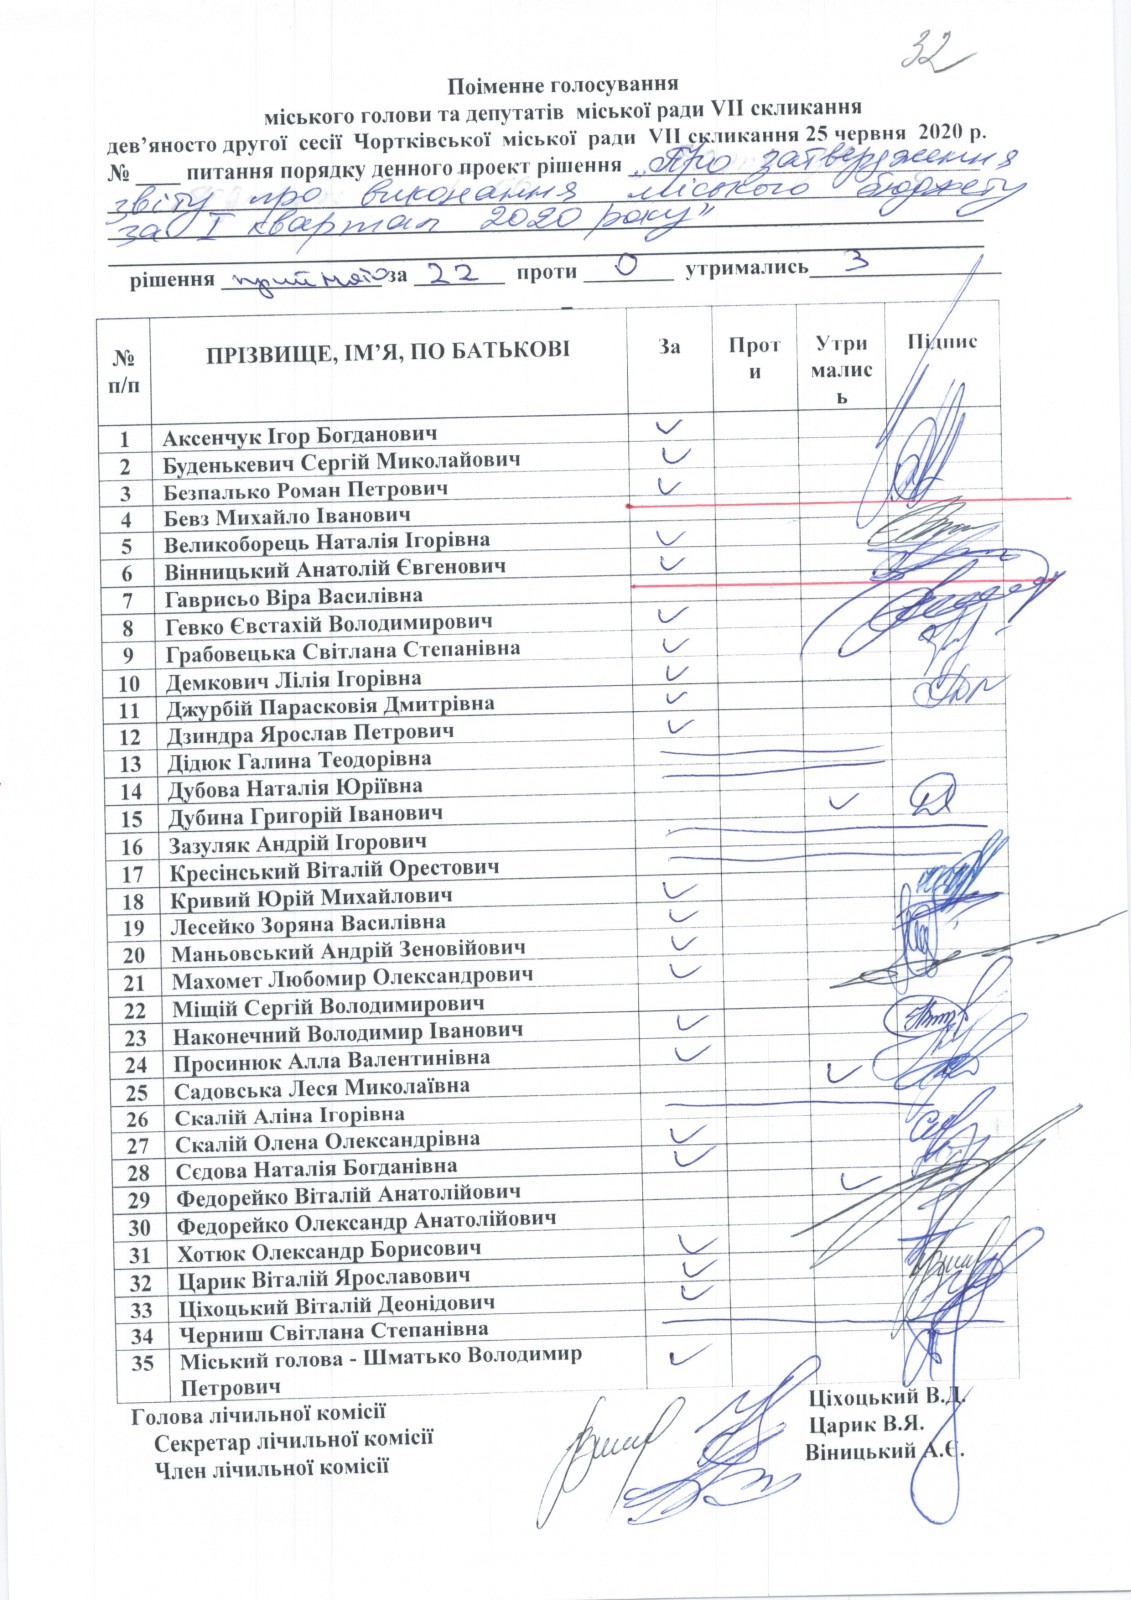 32
Поіменне голосування
міського голови та депутатів міської ради VII скликання
дев’яносто другої сесії Чортківської міської ради VII скликання 25 червня 2020 р.
№ ____ питання порядку денного проект рішення „Про затвердження
звіту про виконання міського бюджету
за I квартал 2020 року”
рішення прийнято за 22 проти 0 утримались 3
№ п/п ПРІЗВИЩЕ, ІМ’Я, ПО БАТЬКОВІ За Проти Утримались Підпис
1 Аксенчук Ігор Богданович ✓
2 Буденькевич Сергій Миколайович ✓
3 Безпалько Роман Петрович ✓
4 Бевз Михайло Іванович
5 Великоборець Наталія Ігорівна ✓
6 Вінницький Анатолій Євгенович ✓
7 Гаврисьо Віра Василівна
8 Гевко Євстахій Володимирович ✓
9 Грабовецька Світлана Степанівна ✓
10 Демкович Лілія Ігорівна ✓
11 Джурбій Парасковія Дмитрівна ✓
12 Дзиндра Ярослав Петрович ✓
13 Дідюк Галина Теодорівна
14 Дубова Наталія Юріївна
15 Дубина Григорій Іванович ✓
16 Зазуляк Андрій Ігорович
17 Кресінський Віталій Орестович
18 Кривий Юрій Михайлович ✓
19 Лесейко Зоряна Василівна ✓
20 Маньовський Андрій Зеновійович ✓
21 Махомет Любомир Олександрович ✓
22 Міщій Сергій Володимирович
23 Наконечний Володимир Іванович ✓
24 Просинюк Алла Валентинівна ✓
25 Садовська Леся Миколаївна ✓
26 Скалій Аліна Ігорівна
27 Скалій Олена Олександрівна ✓
28 Сєдова Наталія Богданівна ✓
29 Федорейко Віталій Анатолійович ✓
30 Федорейко Олександр Анатолійович
31 Хотюк Олександр Борисович ✓
32 Царик Віталій Ярославович ✓
33 Ціхоцький Віталій Деонідович ✓
34 Черниш Світлана Степанівна
35 Міський голова - Шматько Володимир ✓
Петрович
Голова лічильної комісії Ціхоцький В.Д.
Секретар лічильної комісії Царик В.Я.
Член лічильної комісії Віницький А.Є.